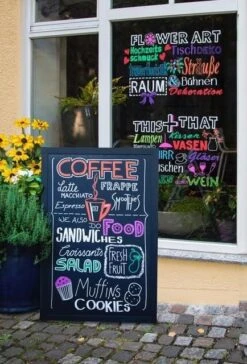 FLOWER ART
Hochzeits
schmuck
Tischdeko
Sträuße
RAUM & Bühnen
Dekoration
THIS + THAT
Lampen
Kissen
VASEN
Gläser
WEIN
COFFEE
Latte
MACCHIATO
FRAPPE
Espresso
Smoothies
WE ALSO DO FOOD
SANDWICHES
Croissants
SALAD
FRESH
FRUIT
Muffins
COOKIES